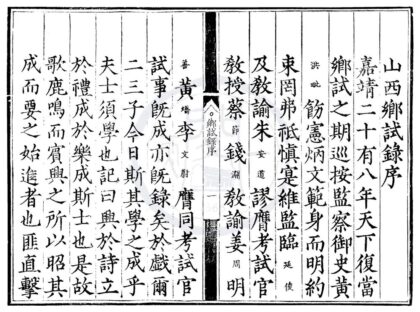 山西鄉試錄序
嘉靖二十有八年天下復當
鄉試之期巡按監察御史黃
洪毗飭憲炳文範身而明約
束罔弗祗慎寔維監臨延
及教諭朱安道謬膺考試官
教授蔡錢教諭姜周明
鄉試錄序
一
善黃李文蔚膺同考試官
試事旣成亦旣錄矣於戲爾
二三子今日斯其學之成乎
夫士須學也記曰興於詩立
於禮成於樂成斯士也是故
歌鹿鳴而賓興之所以昭其
成而要之始進者也匪直擊